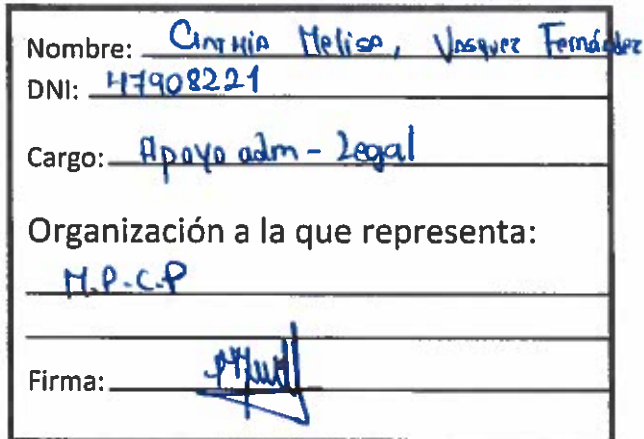 Nombre: Cinthia Melisa, Vasquez Fernández
DNI: 47908221
Cargo: Apoyo adm - Legal
Organización a la que representa:
M.P.C.P
Firma: